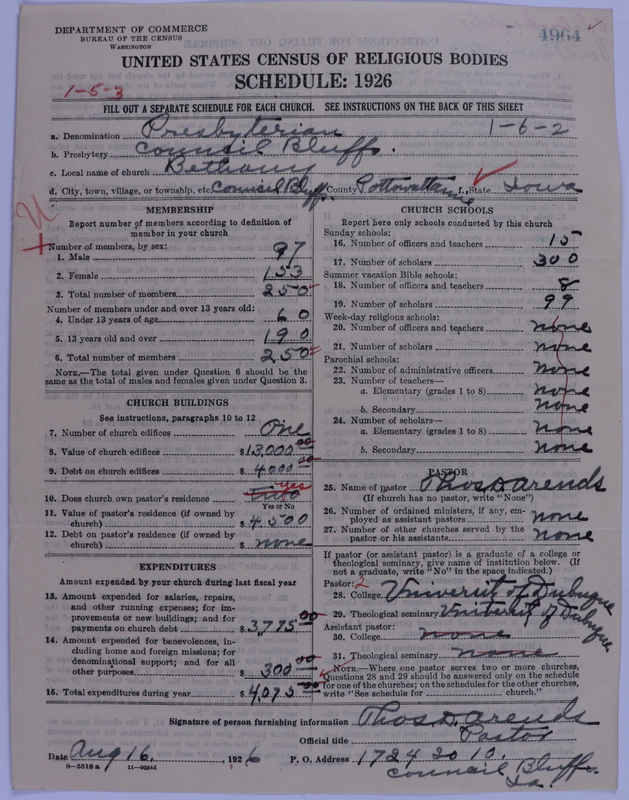 DEPARTMENT OF COMMERCE
BUREAU OF THE CENSUS
WASHINGTON
4964
UNITED STATES CENSUS OF RELIGIOUS BODIES
SCHEDULE: 1926
1-5-3
FILL OUT A SEPARATE SCHEDULE FOR EACH CHURCH. SEE INSTRUCTIONS ON THE BACK OF THIS SHEET
a. Denomination Presbyterian 1-6-2
b. Presbytery Council Bluffs.
c. Local name of church Bethany
d. City, town, village, or township, etc. Council Bluffs. County Pottowattamie, State Iowa
MEMBERSHIP
Report number of members according to definition of
member in your church
Number of members, by sex:
1. Male 97
2. Female 153
3. Total number of members 250
Number of members under and over 13 years old:
4. Under 13 years of age 60
5. 13 years old and over 190
6. Total number of members 250
NOTE.—The total given under Question 6 should be the
same as the total of males and females given under Question 3.
CHURCH BUILDINGS
See instructions, paragraphs 10 to 12
7. Number of church edifices One
8. Value of church edifices $13,000 00
9. Debt on church edifices $4000 00
10. Does church own pastor's residence yes
Yes or No
11. Value of pastor's residence (if owned by
church) $4500
12. Debt on pastor's residence (if owned by
church) $none
EXPENDITURES
Amount expended by your church during last fiscal year
13. Amount expended for salaries, repairs,
and other running expenses; for im-
provements or new buildings; and for
payments on church debt $3,775 00
14. Amount expended for benevolences, in-
cluding home and foreign missions; for
denominational support; and for all
other purposes $300 00
15. Total expenditures during year $4,075 00
CHURCH SCHOOLS
Report here only schools conducted by this church
Sunday schools:
16. Number of officers and teachers 15
17. Number of scholars 300
Summer vacation Bible schools:
18. Number of officers and teachers 8
19. Number of scholars 99
Week-day religious schools:
20. Number of officers and teachers none
21. Number of scholars none
Parochial schools:
22. Number of administrative officers none
23. Number of teachers—
a. Elementary (grades 1 to 8) none
b. Secondary none
24. Number of scholars—
a. Elementary (grades 1 to 8) none
b. Secondary none
PASTOR
25. Name of pastor Thos D Arends
(If church has no pastor, write "None")
26. Number of ordained ministers, if any, em-
ployed as assistant pastors none
27. Number of other churches served by the
pastor or his assistants none
If pastor (or assistant pastor) is a graduate of a college or
theological seminary, give name of institution below. (If
not a graduate, write "No" in the space indicated.)
Pastor: 2
28. College University of Dubuque
29. Theological seminary University of Dubuque
Assistant pastor:
30. College none
31. Theological seminary none
NOTE.—Where one pastor serves two or more churches,
Questions 28 and 29 should be answered only on the schedule
for one of the churches; on the schedules for the other churches,
write "See schedule for church."
Signature of person furnishing information Thos D. Arends
Official title Pastor
Date Aug 16, 1926 P. O. Address 1724 30 10.
8-5518 a
Council Bluffs.
Ia.